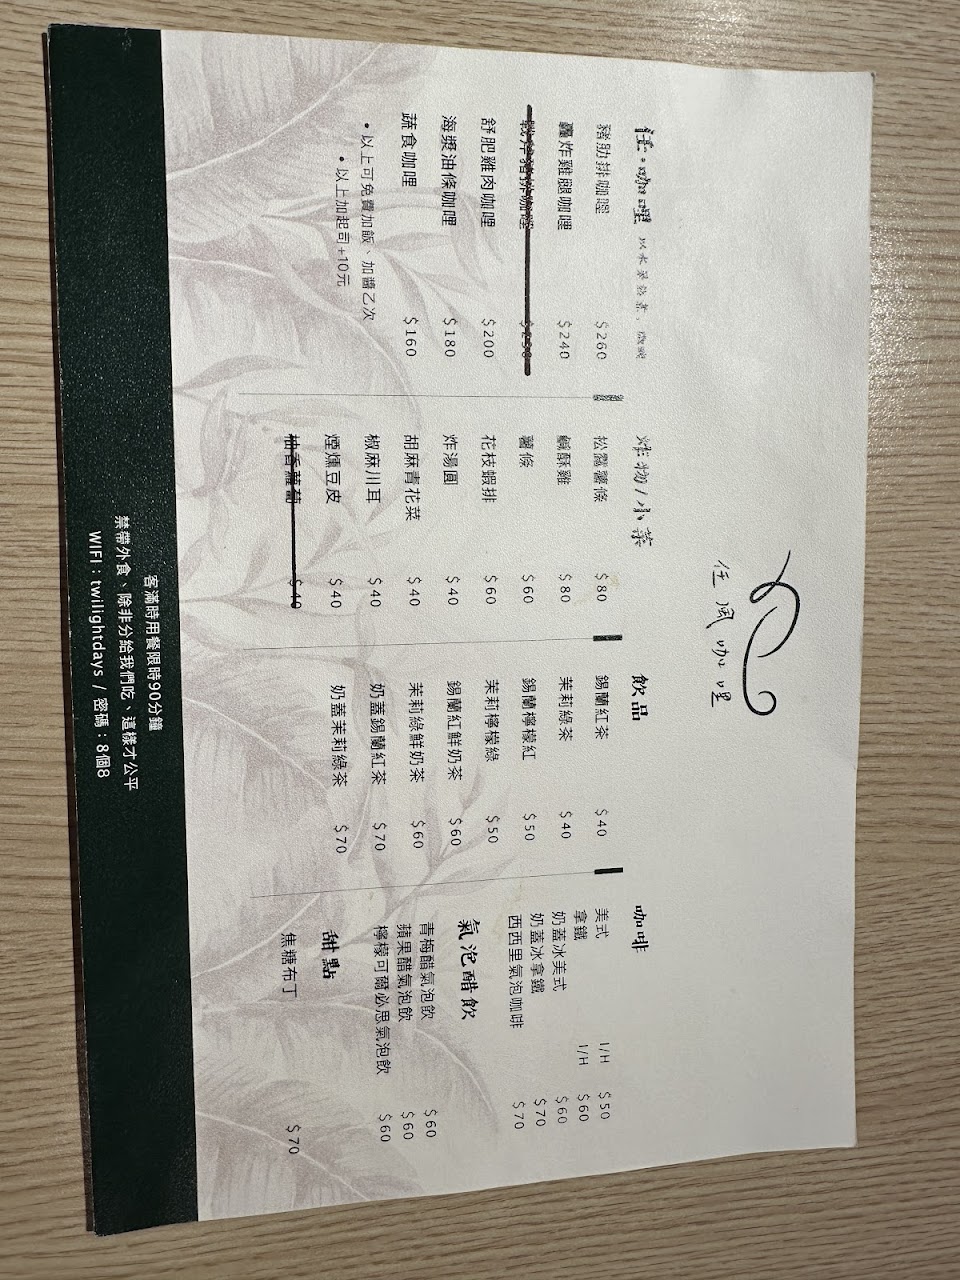 任風咖哩
任·咖哩 以水果熬煮、微辣
豬肋排咖哩 $260
轟炸雞腿咖哩 $240
舒肥雞肉咖哩 $200
海漿油條咖哩 $180
蔬食咖哩 $160
• 以上可免費加飯、加醬乙次
• 以上加起司+10元
炸物/小菜
松露薯條 $80
鹹酥雞 $80
薯條 $60
花枝蝦排 $60
炸湯圓 $40
胡麻青花菜 $40
椒麻川耳 $40
煙燻豆皮 $40
柚香蘿蔔 $40
飲品
錫蘭紅茶 $40
茉莉綠茶 $40
錫蘭檸檬紅 $50
茉莉檸檬綠 $50
錫蘭紅鮮奶茶 $60
茉莉綠鮮奶茶 $60
奶蓋錫蘭紅茶 $70
奶蓋茉莉綠茶 $70
咖啡
美式 I/H $50
拿鐵 I/H $60
奶蓋冰美式 $60
奶蓋冰拿鐵 $70
西西里氣泡咖啡 $70
氣泡醋飲
青梅醋氣泡飲 $60
蘋果醋氣泡飲 $60
檸檬可爾必思氣泡飲 $60
甜點
焦糖布丁 $70
客滿時用餐限時90分鐘
禁帶外食、除非分給我們吃、這樣才公平
WIFI：twilightdays / 密碼：8個8